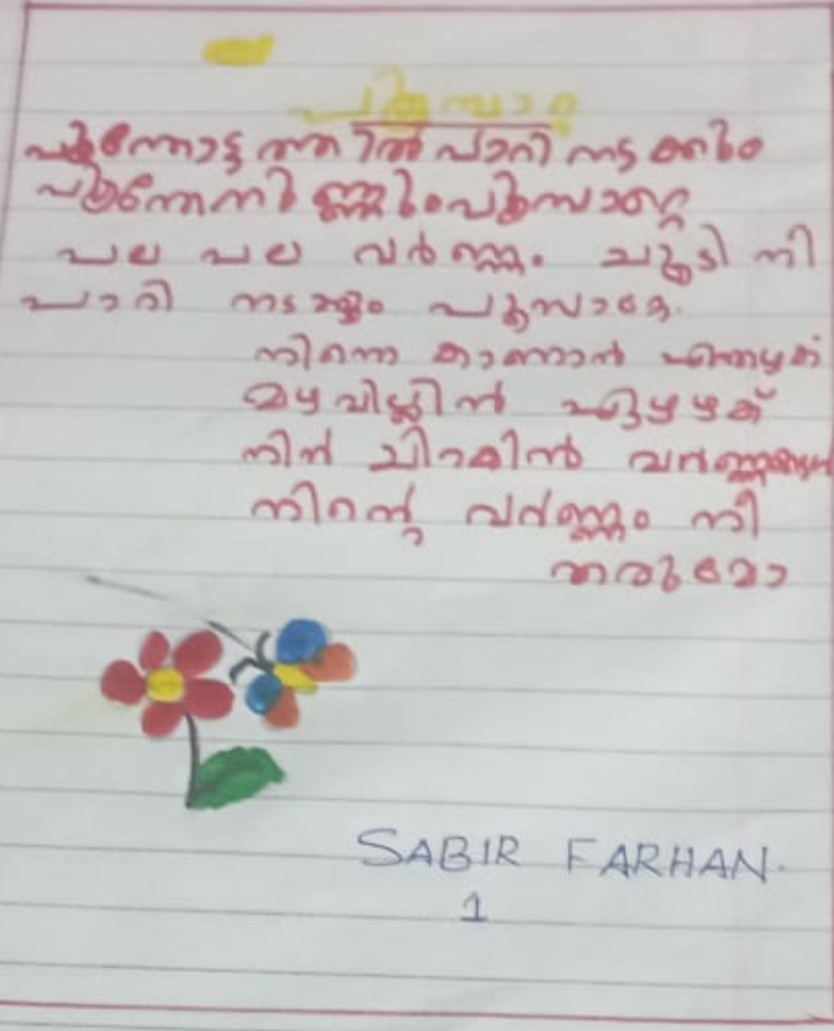 പൂമ്പാറ്റ
പൂന്തോട്ടത്തിൽ പാറി നടക്കും
പൂന്തേനുണ്ണും പൂമ്പാറ്റെ
പല പല വർണ്ണം ചൂടി നി
പാറി നടക്കും പൂമ്പാറ്റേ.
നിന്നെ കാണാൻ എന്തഴക്
മഴവില്ലിൻ ഏഴഴക്
നിൻ ചിറകിൻ വർണ്ണങ്ങൾ
നിന്റെ വർണ്ണം നീ
തരുമോ
SABIR FARHAN.
1